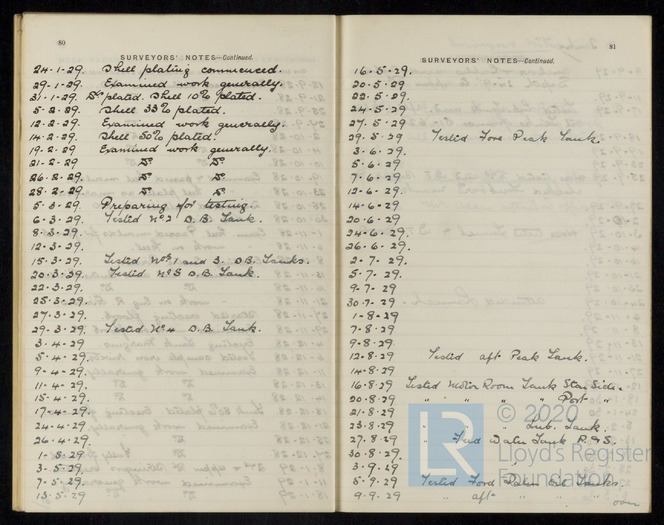 80
SURVEYORS' NOTES—Continued.
24.1.29. Shell plating commenced.
29.1.29. Examined work generally.
31.1.29. Do plated. Shell 10% plated.
5.2.29. Shell 33% plated.
12.2.29. Examined work generally.
14.2.29. Shell 50% plated.
19.2.29 Examined work generally.
21.2.29 Do Do
26.2.29. Do Do
28.2.29 Do Do
5.3.29. Preparing for testing.
6.3.29. Tested No 2 D.B. Tank.
8.3.29.
12.3.29.
15.3.29. Tested Nos 1 and 3. D.B. Tanks.
20.3.29. Tested No 5 D.B. Tank.
22.3.29.
25.3.29.
27.3.29.
29.3.29. Tested No 4 D.B. Tank.
3.4.29.
5.4.29.
9.4.29.
11.4.29.
15.4.29.
17.4.29.
24.4.29
26.4.29.
1.5.29
3.5.29.
7.5.29.
13.5.29
81
SURVEYORS' NOTES—Continued.
16.5.29.
20.5.29
22.5.29.
24.5.29
27.5.29
29.5.29 Tested Fore Peak Tank.
3.6.29.
5.6.29.
7.6.29.
12.6.29.
14.6.29
20.6.29
24.6.29
26.6.29.
2.7.29.
5.7.29.
9.7.29
30.7.29
1.8.29
7.8.29
9.8.29
12.8.29 Tested aft Peak Tank.
14.8.29
16.8.29 Tested Motor Room Tank Star Side.
20.8.29 " " " " Port "
21.8.29
23.8.29 " Lub. Tank.
27.8.29 " Feed Water Tank P. & S.
30.8.29.
3.9.29
5.9.29 Tested Ford Palm Oil Tanks
9.9.29 " aft " " "
over
LR
© 2020
Lloyd's Register
Foundation